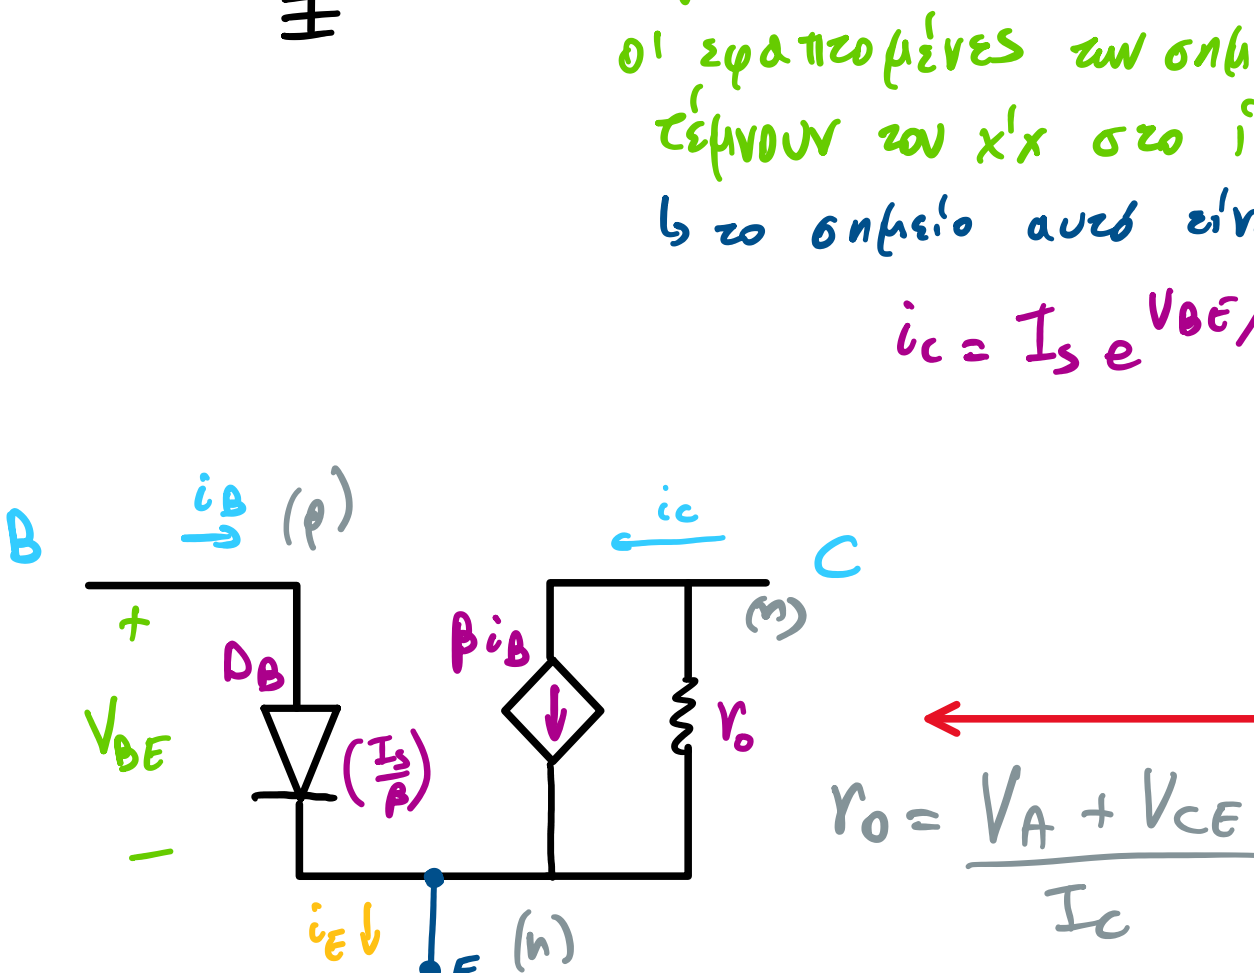 οι εφαπτομένες των σημ
τέμνουν τον x'x στο
↳ το σημείο αυτό είν
i_C = I_S e^{V_{BE}/
i_B (p)
i_C
B
C
+
β i_B
(n)
D_B
V_{BE}
(I_S/β)
r_o
r_o = (V_A + V_{CE})/I_C
−
i_E ↓
(n)
E